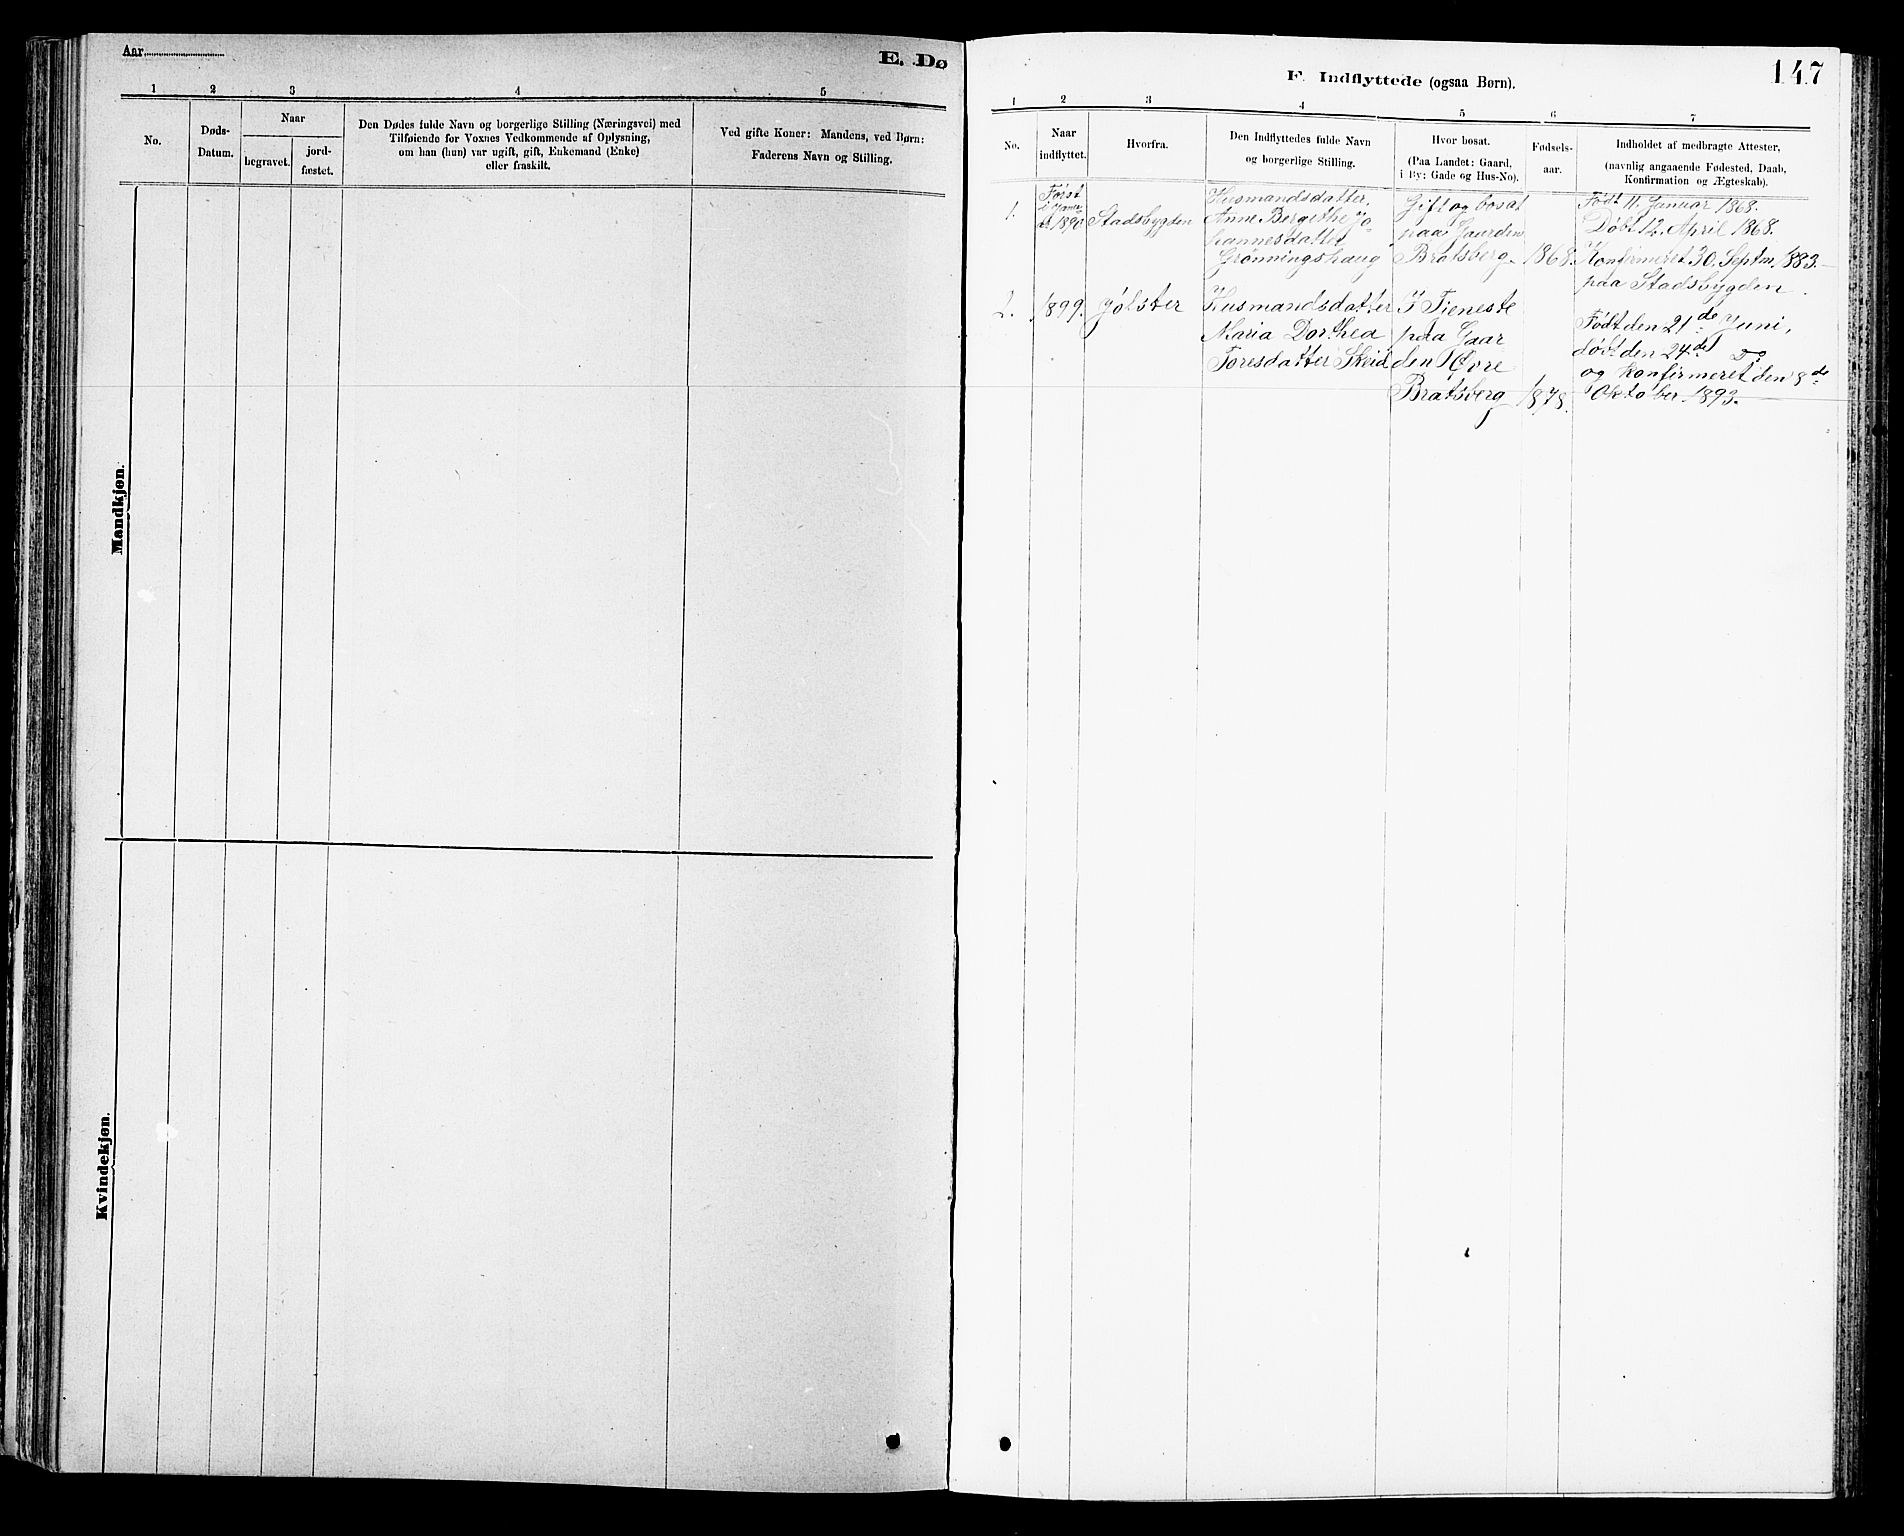 Aar
E. Dø
1 2 3 4 5
No.
Døds-
Datum.
Naar
begravet.
jord-
fæstet.
Den Dødes fulde Navn og borgerlige Stilling (Næringsvei) med
Tilføiende for Voxnes Vedkommende af Oplysning,
om han (hun) var ugift, gift, Enkemand (Enke)
eller fraskilt.
Ved gifte Koner: Mandens, ved Børn:
Faderens Navn og Stilling.
Mandkjøn.
Kvindekjøn.
147
F. Indflyttede (ogsaa Børn).
1 2 3 4 5 6 7
No.
Naar
indflyttet.
Hvorfra.
Den Indflyttedes fulde Navn
og borgerlige Stilling.
Hvor bosat.
(Paa Landet: Gaard,
i By: Gade og Hus-No).
Fødsels-
aar.
Indholdet af medbragte Attester,
(navnlig angaaende Fødested, Daab,
Konfirmation og Ægteskab).
1.
Først
i
1890
Stadsbygden
Husmandsdatter
Anne Bergithe Jo-
hannesdatter
Grønningshaug
Gift og bosat
paa Gaarden
Bratsberg
1868.
Født 11. Januar 1868.
Døbt 12. April 1868.
Konfirmeret 30. Septm. 1883.
paa Stadsbygden.
2.
1899.
Jølster
Husmandsdatter
Maria Dorthea
Toresdatter Skeid
I Tieneste
paa Gaar
den Øvre
Bratsberg
1878.
Født den 21de Juni,
døbt den 24de Do
og Konfirmeret den 8de
Oktober 1893.